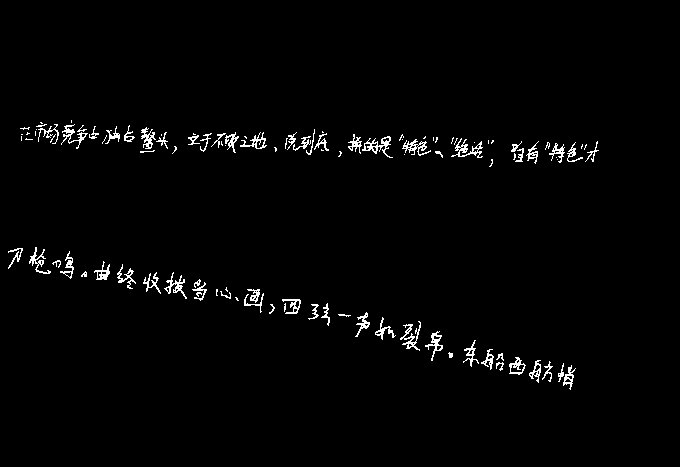 在市场竞争中独占鳌头，立于不败之地、说到底，拼的是“特色”、“绝活”，独有“特色”才
刀枪鸣。曲终收拨当心画，四弦一声如裂帛。东船西舫悄